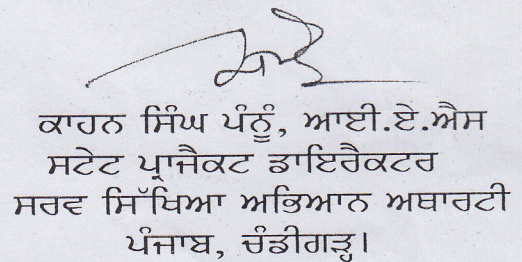 ਕਾਹਨ ਸਿੰਘ ਪੰਨੂੰ, ਆਈ.ਏ.ਐਸ
ਸਟੇਟ ਪ੍ਰਾਜੈਕਟ ਡਾਇਰੈਕਟਰ
ਸਰਵ ਸਿੱਖਿਆ ਅਭਿਆਨ ਅਥਾਰਟੀ
ਪੰਜਾਬ, ਚੰਡੀਗੜ੍ਹ।